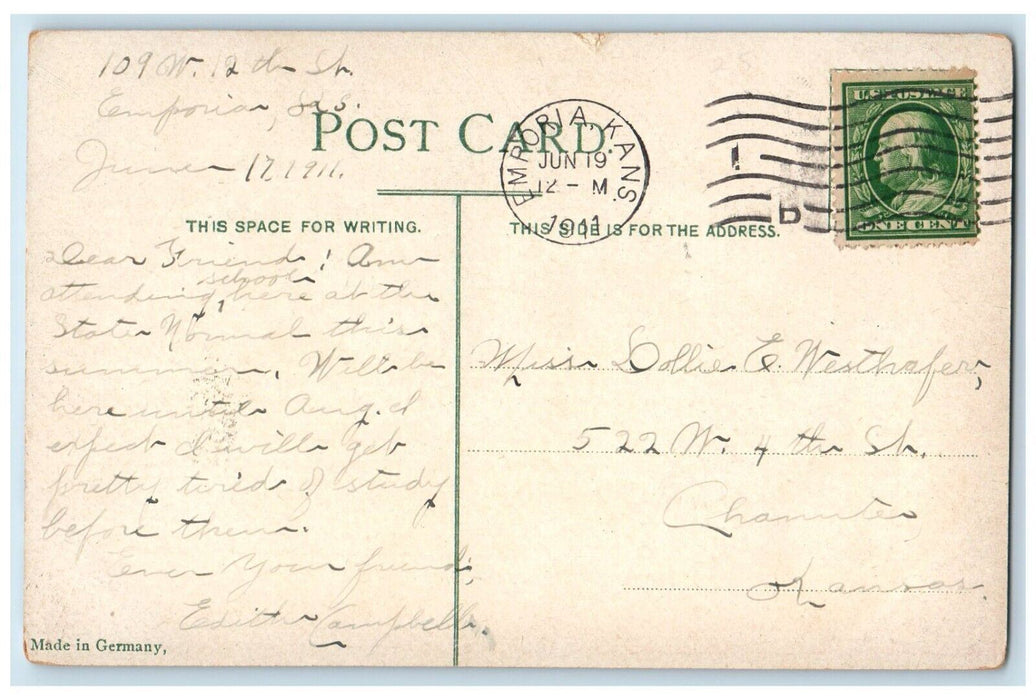 109 W. 12 th St.
Emporia,
June 17, 1911.
POST CARD.
EMPORIA, KANS.
JUN 19
12 - M
1911
U.S. POSTAGE
ONE CENT
THIS SPACE FOR WRITING.
THIS SIDE IS FOR THE ADDRESS.
Dear Friend! Am
school
attending, here at the
State Normal this
summer. Will be
here until Aug. I
expect I will get
pretty tired of study
before then.
Ever Your friend,
Edith Campbell.
Miss Dollie E. Westhafer,
522 W. 4 th St.
Chanute
Kansas.
Made in Germany,